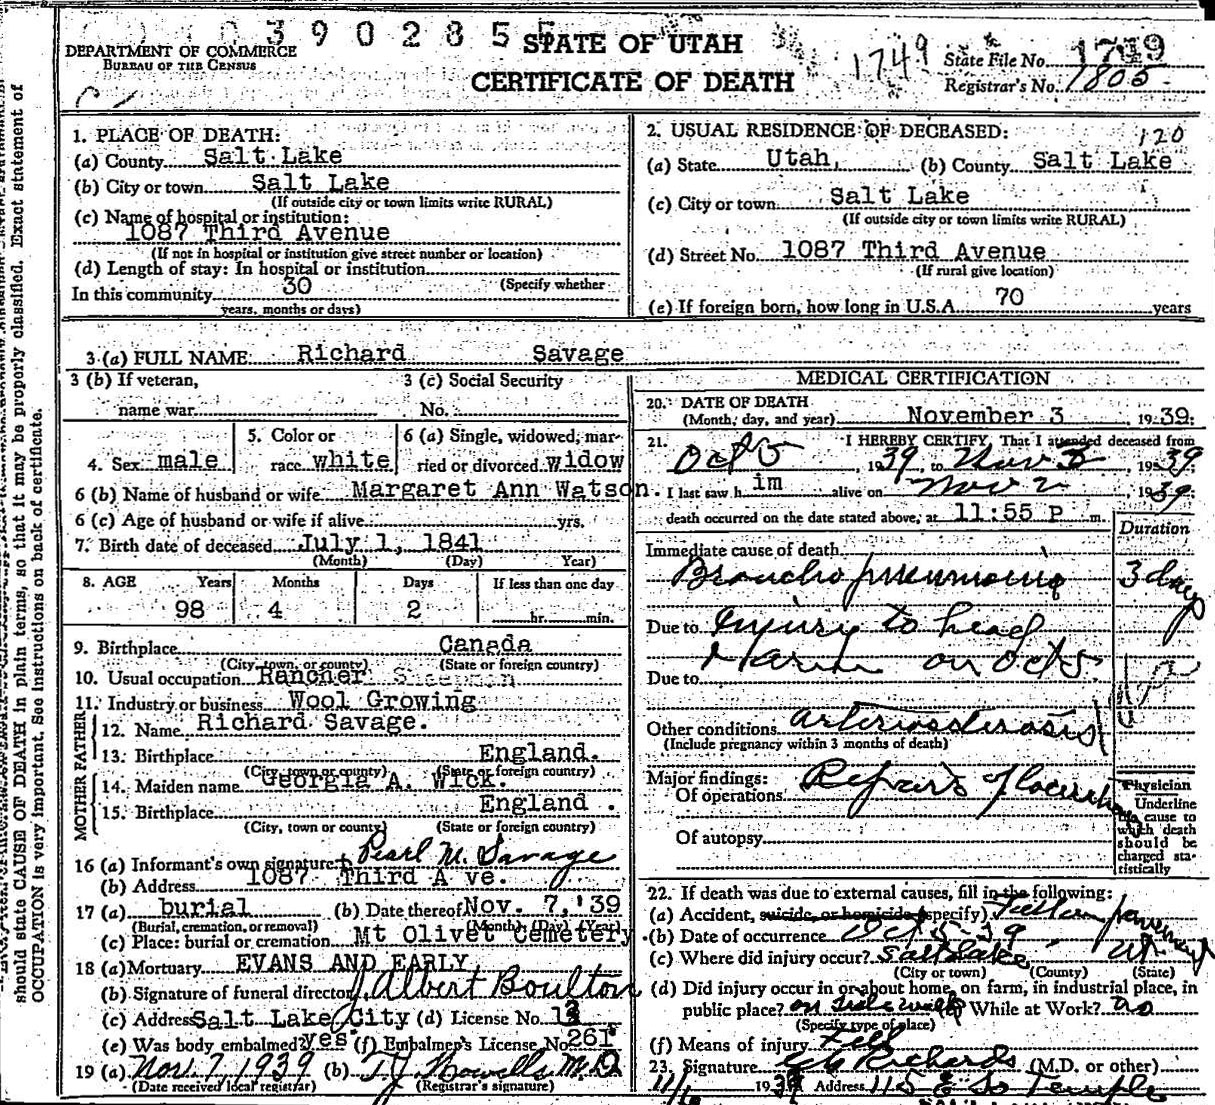 3902855
STATE OF UTAH
CERTIFICATE OF DEATH
DEPARTMENT OF COMMERCE
BUREAU OF THE CENSUS
1749
State File No. 1749
Registrar's No. 1805
1. PLACE OF DEATH:
(a) County Salt Lake
(b) City or town Salt Lake
(If outside city or town limits write RURAL)
(c) Name of hospital or institution:
1087 Third Avenue
(If not in hospital or institution give street number or location)
(d) Length of stay: In hospital or institution
(Specify whether
In this community 30
years, months or days)
2. USUAL RESIDENCE OF DECEASED:
120
(a) State Utah, (b) County Salt Lake
(c) City or town Salt Lake
(If outside city or town limits write RURAL)
(d) Street No. 1087 Third Avenue
(If rural give location)
(e) If foreign born, how long in U.S.A. 70 years
3 (a) FULL NAME: Richard Savage
3 (b) If veteran,
name war
3 (c) Social Security
No.
4. Sex male
5. Color or
race white
6 (a) Single, widowed, mar-
ried or divorced widow
6 (b) Name of husband or wife Margaret Ann Watson
6 (c) Age of husband or wife if alive yrs.
7. Birth date of deceased July 1, 1841
(Month) (Day) Year)
8. AGE Years Months Days If less than one day
98 4 2 hr. min.
9. Birthplace Canada
(City, town, or county) (State or foreign country)
10. Usual occupation Rancher Sheepman
11. Industry or business Wool Growing
FATHER
12. Name Richard Savage.
13. Birthplace England.
(City, town or county) (State or foreign country)
MOTHER
14. Maiden name Georgia A. Wick.
15. Birthplace England .
(City, town or county) (State or foreign country)
16 (a) Informant's own signature Pearl M. Savage
(b) Address 1087 Third A ve.
17 (a) burial (b) Date thereof Nov. 7, '39
(Burial, cremation, or removal) (Month) (Day) (Year)
(c) Place: burial or cremation Mt Olivet Cemetery
18 (a) Mortuary EVANS AND EARLY
(b) Signature of funeral director J. Albert Boulton
(c) Address Salt Lake City (d) License No.
(e) Was body embalmed? yes (f) Embalmer's License No. 261
19 (a) Nov. 7, 1939 (b) T.J. Howells M.D.
(Date received local registrar) (Registrar's signature)
MEDICAL CERTIFICATION
20. DATE OF DEATH
(Month, day, and year) November 3 1939.
21. I HEREBY CERTIFY, That I attended deceased from
Oct 5, 1939, to Nov 3 1939
I last saw him alive on Nov 2, 1939
death occurred on the date stated above, at 11:55 P m.
Duration
Immediate cause of death
Broncho pneumonia 3 days
Due to Injury to head
on Oct 5.
Due to
Other conditions arteriosclerosis
(Include pregnancy within 3 months of death)
Major findings:
Of operations Repair of laceration
Of autopsy
Physician
Underline
the cause to
which death
should be
charged sta-
tistically
22. If death was due to external causes, fill in the following:
(a) Accident, suicide, or homicide (specify)
(b) Date of occurrence Oct 5-39
(c) Where did injury occur? Salt Lake Ut
(City or town) (County) (State)
(d) Did injury occur in or about home, on farm, in industrial place, in
public place? on sidewalk While at Work? no
(Specify type of place)
(f) Means of injury Fell
23. Signature Richards (M.D. or other)
11/6 1939 Address 115 E So Temple
should state CAUSE OF DEATH in plain terms, so that it may be properly classified. Exact statement of
OCCUPATION is very important. See instructions on back of certificate.